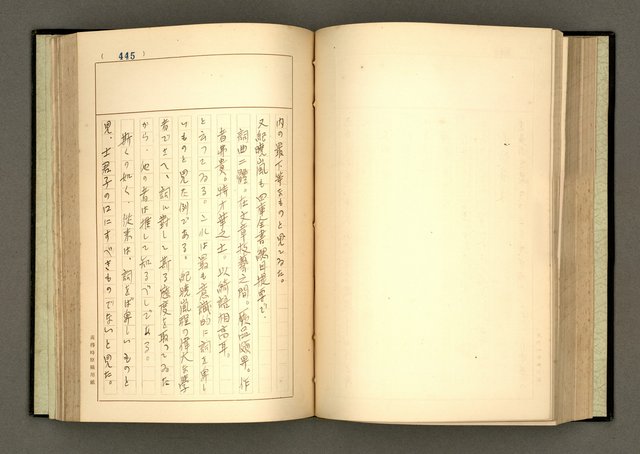 (445)
内の最下等なものと見てゐた。
又紀曉嵐も四庫全書總目提要で、
詞曲二體。在文章技藝之間。厥品頗卑。作
者弗貴。特才華之士。以綺語相高耳。
と云つてゐる。これは最も意識的に詞を卑し
いものと見た例である。紀曉嵐程の偉大な學
者でさへ、詞に對して斯る態度を取つてゐた
から、他の者は推して知るべしである。
斯くの如く、從來は、詞をば卑しいものと
見、士君子の口にすべきものでないと見た。
黃得時原稿用紙